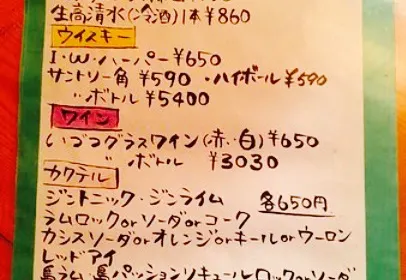 生高清水(冷酒)1本¥860
ウイスキー
I・W・ハーパー¥650
サントリー角 ¥590 ・ハイボール¥590
〃ボトル ¥5400
ワイン
いづつグラスワイン(赤、白)¥650
〃 ボトル ¥3030
カクテル
ジントニック・ジンライム 各650円
ラムロックorソーダorコーク
カシスソーダorオレンジorキールorウーロン
レッドアイ
パッションリキュールロックorソーダ